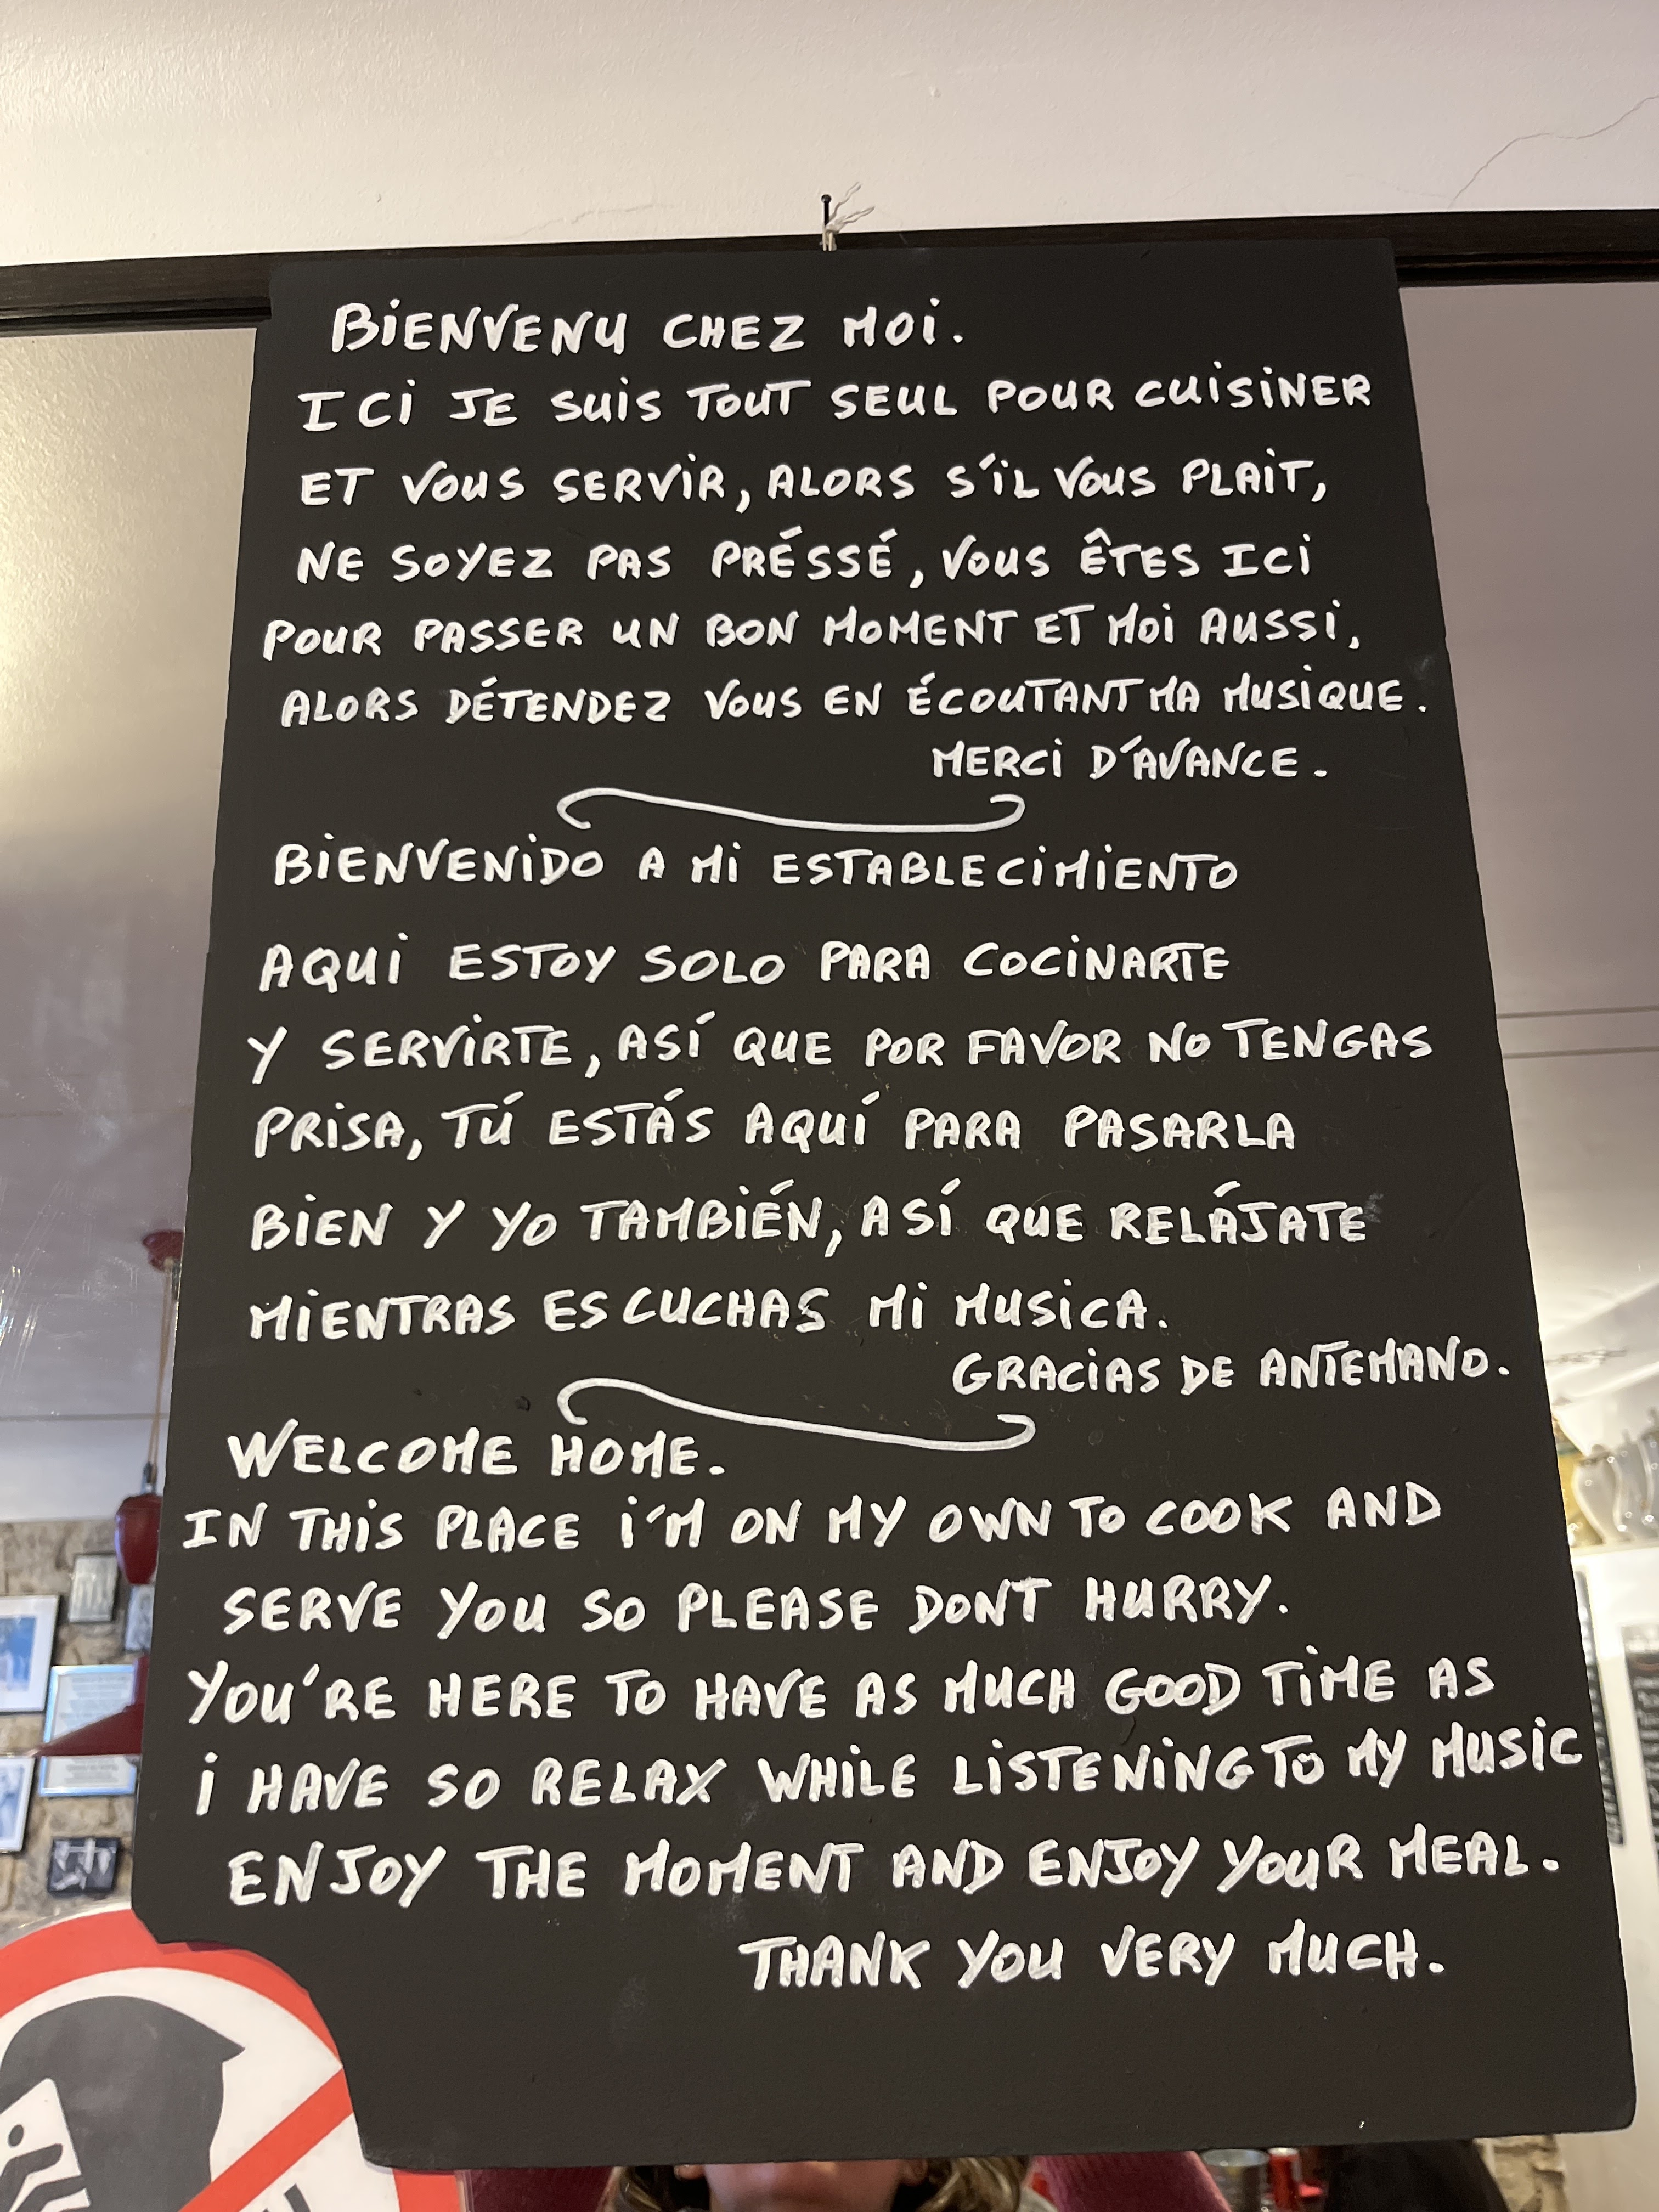 BiENVENU CHEZ MOi.
ICi JE SUiS TOUT SEUL POUR CUiSiNER
ET VOUS SERViR, ALORS S'iL VOUS PLAiT,
NE SOYEZ PAS PRÉSSÉ, VOUS ÊTES ICi
POUR PASSER UN BON MOMENT ET MOi AUSSi,
ALORS DÉTENDEZ VOUS EN ÉCOUTANT MA MUSiQUE.
MERCi D'AVANCE.
BiENVENiDO A Mi ESTABLECiMiENTO
AQUi ESTOY SOLO PARA COCiNARTE
Y SERViRTE, ASÍ QUE POR FAVOR NO TENGAS
PRiSA, TÚ ESTÁS AQUÍ PARA PASARLA
BiEN Y YO TAMBiÉN, ASÍ QUE RELÁJATE
MiENTRAS ESCUCHAS Mi MUSiCA.
GRACiAS DE ANTEMANO.
WELCOME HOME.
IN THiS PLACE i'M ON MY OWN TO COOK AND
SERVE YOU SO PLEASE DONT HURRY.
YOU'RE HERE TO HAVE AS MUCH GOOD TiME AS
i HAVE SO RELAX WHiLE LiSTENiNG TO MY MUSiC
ENJOY THE MOMENT AND ENJOY YOUR MEAL.
THANK YOU VERY MUCH.